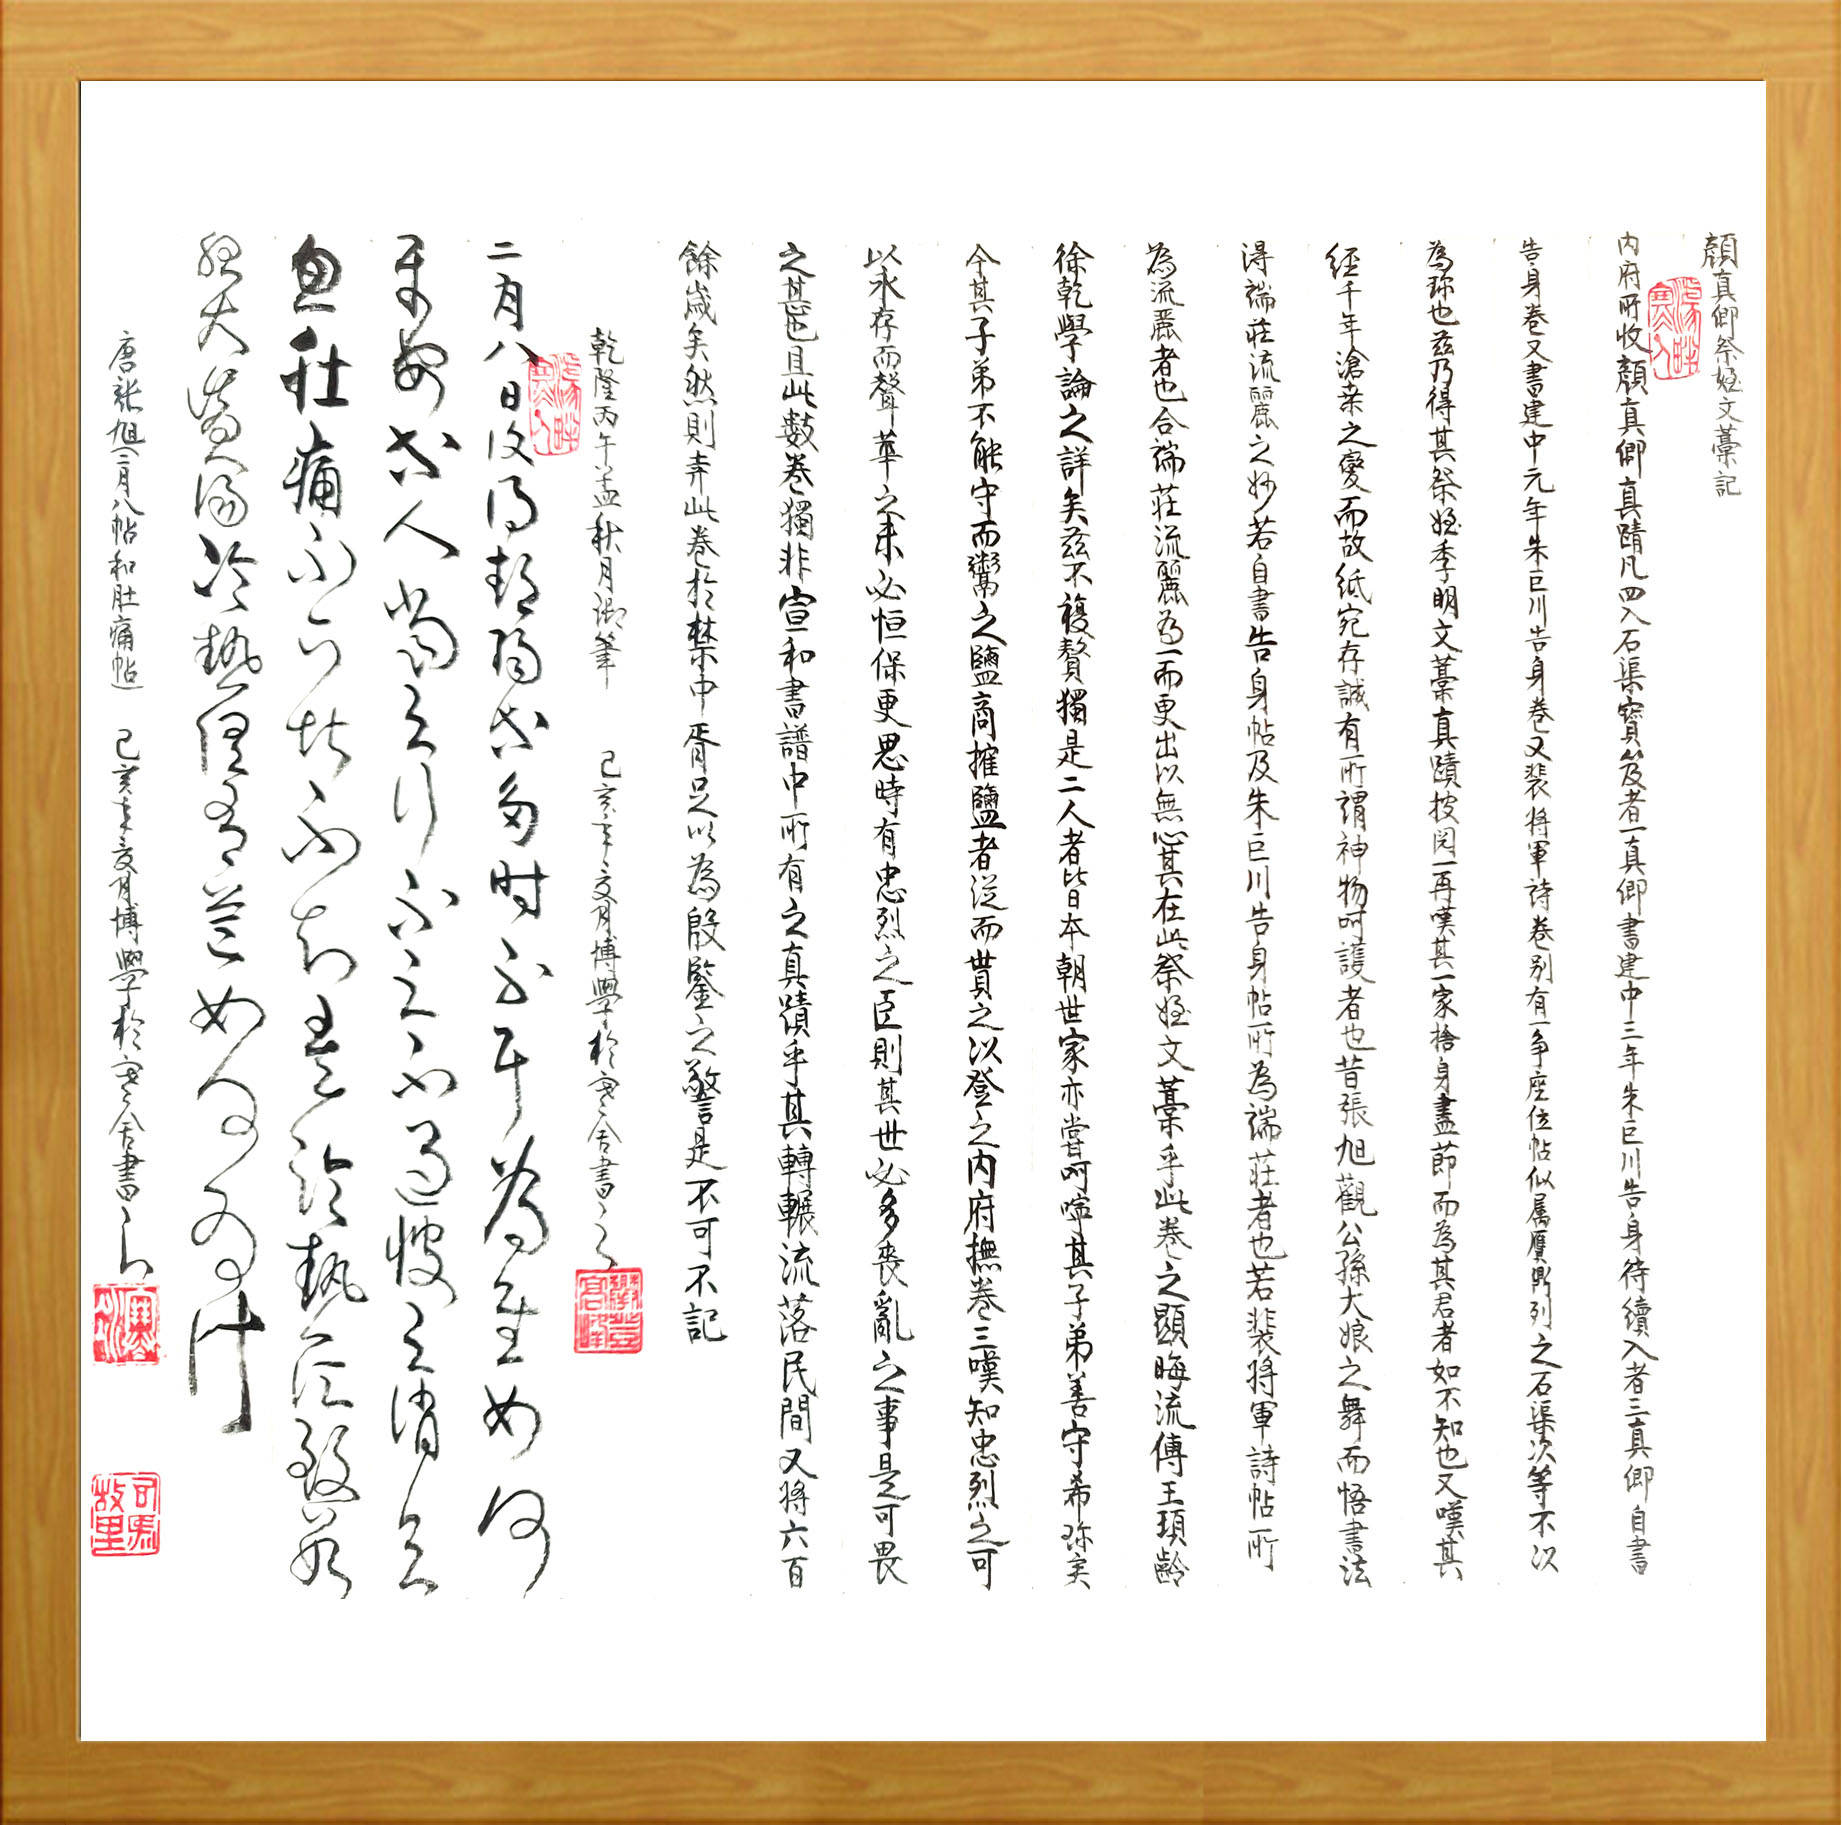 顏真卿祭姪文藁記
內府所收顏真卿真蹟凡四入石渠寶笈者一真卿書建中三年朱巨川告身待續入者三真卿自書
告身卷又書建中元年朱巨川告身卷又裴將軍詩卷別有爭座位帖似屬贋鼎列之石渠次等不以
為珎也茲乃得其祭姪季明文藁真蹟披閱一再嘆其一家捨身盡節而為其君者如不知也又嘆其
經千年滄桑之變而故紙宛存誠有所謂神物呵護者也昔張旭觀公孫大娘之舞而悟書法
得端莊流麗之妙若自書告身帖及朱巨川告身帖所為端莊者也若裴將軍詩帖所
為流麗者也合端莊流麗為一而更出以無心其在此祭姪文藁乎此卷之顯晦流傳王頊齡
徐乾學論之詳矣茲不複贅獨是二人者皆本朝世家亦嘗呵嚀其子弟善守希珎矣
今其子弟不能守而鬻之鹽商搉鹽者從而貰之以登之內府撫卷三嘆知忠烈之可
以永存而聲華之未必恒保更思時有忠烈之臣則其世必多喪亂之事是可畏
之甚也且此數卷獨非宣和書譜中所有之真蹟乎其轉輾流落民間又將六百
餘歲矣然則弆此卷於禁中胥足以為殷鑒之警是不可不記
乾隆丙午孟秋月御筆 己亥年亥月博學於寒舍書之
二月八日復得鄱陽等多時不耳為慰如何
平安等人當與行不足不過彼與消息
忽肚痛不可堪不知是冷熱所致欲
服大黃湯冷熱俱有益如何為計
唐張旭二月八帖和肚痛帖 己亥年亥月博學於寒舍書之
司馬故里